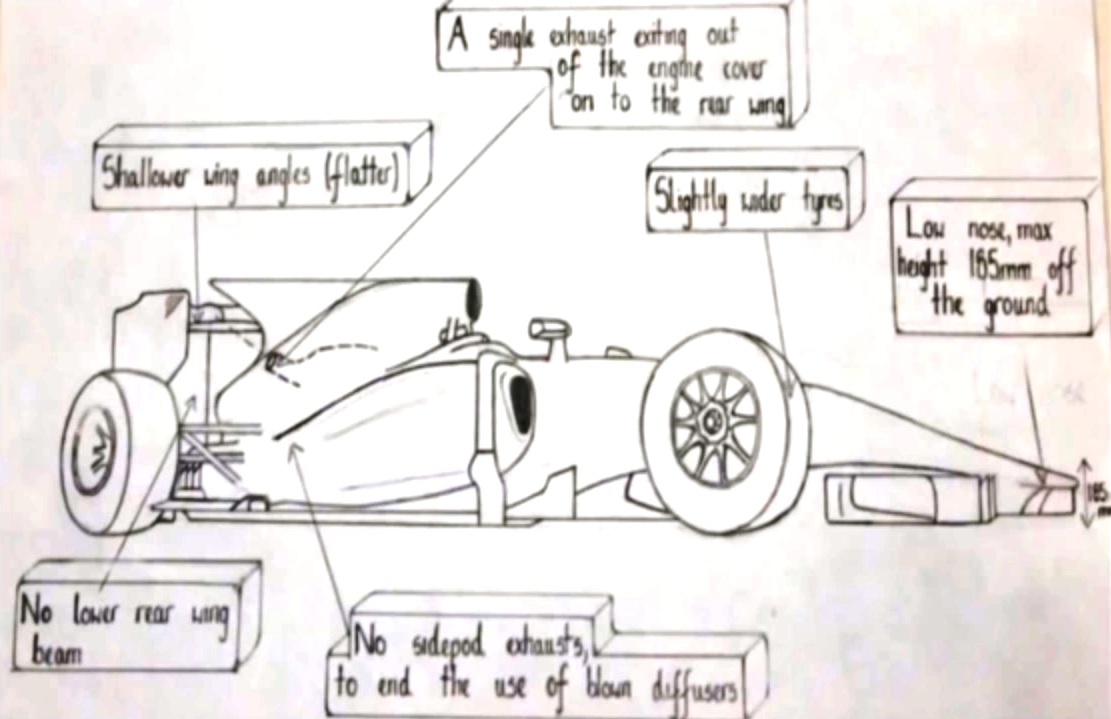 A single exhaust exiting out
of the engine cover
on to the rear wing
Shallower wing angles (flatter)
Slightly wider tyres
Low nose, max
height 185mm off
the ground
185
No lower rear wing
beam
No sidepod exhausts,
to end the use of blown diffusers